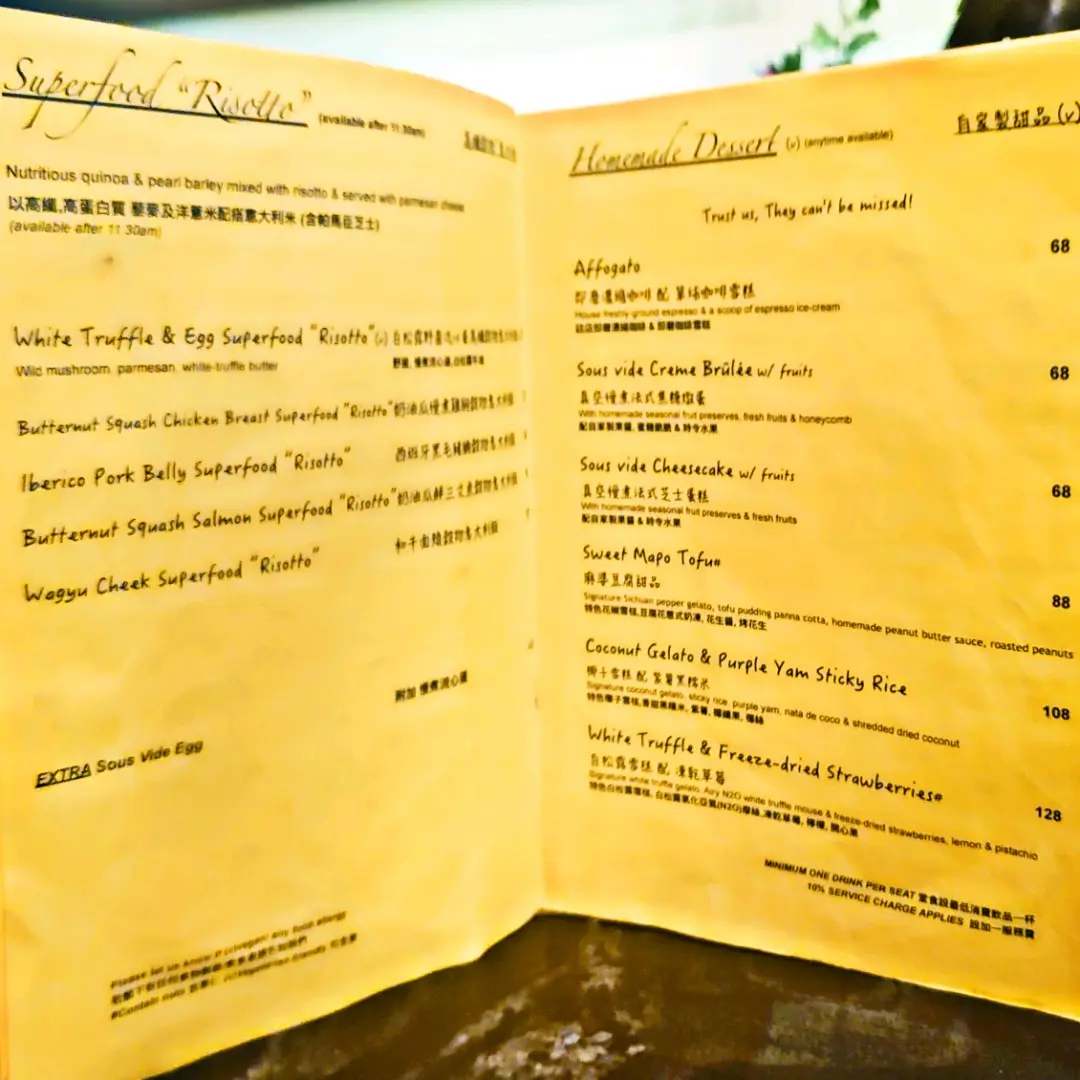 Superfood "Risotto" (available after 11 30am)
Nutritious quinoa & pearl barley mixed with risotto & served with parmesan cheese
以高纖,高蛋白質 藜麥及洋薏米配搭意大利米 (含帕馬臣芝士)
(available after 11 30am)
White Truffle & Egg Superfood "Risotto" (v)
Wild mushroom, parmesan, white-truffle butter
Butternut Squash Chicken Breast Superfood "Risotto"
Iberico Pork Belly Superfood "Risotto"
Butternut Squash Salmon Superfood "Risotto"
Wagyu Cheek Superfood "Risotto"
附加 慢煮流心蛋
EXTRA Sous Vide Egg
Please let us know any food allergy
Homemade Dessert (v) (anytime available) 自家製甜品 (v)
Trust us, They can't be missed!
Affogato 68
即磨濃縮咖啡 配 單球咖啡雪糕
House freshly-ground espresso & a scoop of espresso ice-cream
Sous vide Creme Brûlée w/ fruits 68
真空慢煮法式焦糖燉蛋
With homemade seasonal fruit preserves, fresh fruits & honeycomb
配自家製果醬, 蜜糖脆脆 & 時令水果
Sous vide Cheesecake w/ fruits 68
真空慢煮法式芝士蛋糕
With homemade seasonal fruit preserves & fresh fruits
配自家製果醬 & 時令水果
Sweet Mapo Tofu# 88
麻婆豆腐甜品
Signature Sichuan pepper gelato, tofu pudding panna cotta, homemade peanut butter sauce, roasted peanuts
特色花椒雪糕,豆腐花意式奶凍, 花生醬, 烤花生
Coconut Gelato & Purple Yam Sticky Rice 108
椰子雪糕 配 紫薯黑糯米
Signature coconut gelato, sticky rice, purple yam, nata de coco & shredded dried coconut
特色椰子雪糕,香甜黑糯米, 紫薯, 椰纖果, 椰絲
White Truffle & Freeze-dried Strawberries# 128
白松露雪糕 配 凍乾草莓
Signature white truffle gelato, Airy N2O white truffle mouse & freeze-dried strawberries, lemon & pistachio
特色白松露雪糕, 白松露氧化亞氮(N2O)摩絲,凍乾草莓, 檸檬, 開心果
MINIMUM ONE DRINK PER SEAT 堂食設最低消費飲品一杯
10% SERVICE CHARGE APPLIES 設加一服務費